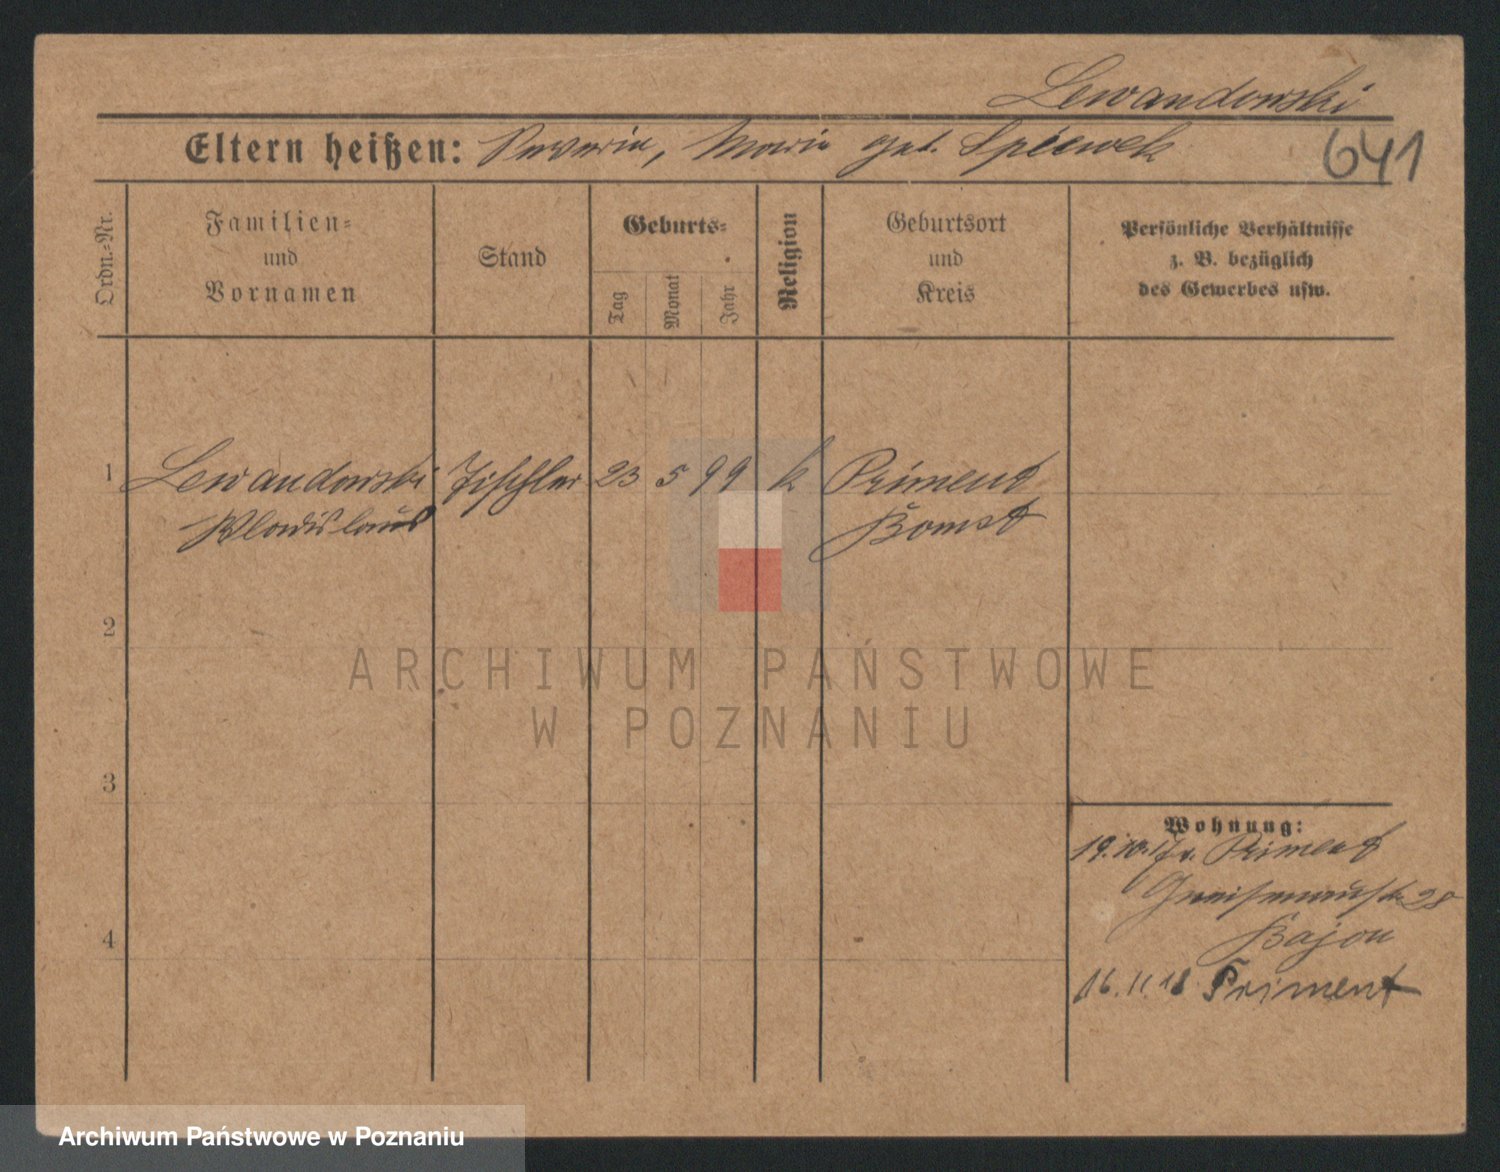 Lewandowski
Eltern heißen: Severin, Maria geb. Śpiewek
641
Ordn.-Nr.
Familien-
und
Vornamen
Stand
Geburts-
Tag
Monat
Jahr
Religion
Geburtsort
und
Kreis
Persönliche Verhältnisse
z. B. bezüglich
des Gewerbes usw.
1 Lewandowski Tischler 23 5 99 k Priment
Wladislaus Bomst
2
3
4
Wohnung:
19.10.17 v. Priment
Gneisenaustr. 28
Bajon
16.11.18 Priment
ARCHIWUM PAŃSTWOWE
W POZNANIU
Archiwum Państwowe w Poznaniu